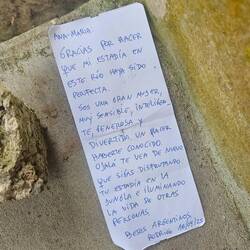 ANA-MARIA:
GRACIAS POR HACER
QUE MI ESTADÍA EN
ESTE RÍO HAYA SIDO
PERFECTA.
SOS UNA GRAN MUJER,
MUY SENSIBLE, INTELIGEN-
TE, GENEROSA Y
DIVERTIDA UN PLACER
HABERTE CONOCIDO
OJALÁ TE VEA DE NUEVO
QUE SIGAS DISFRUTANDO
TU ESTADÍA EN LA
JUNGLA E ILUMINANDO
LA VIDA DE OTRAS
PERSONAS.
BESOS ARGENTINOS
RODRIGO